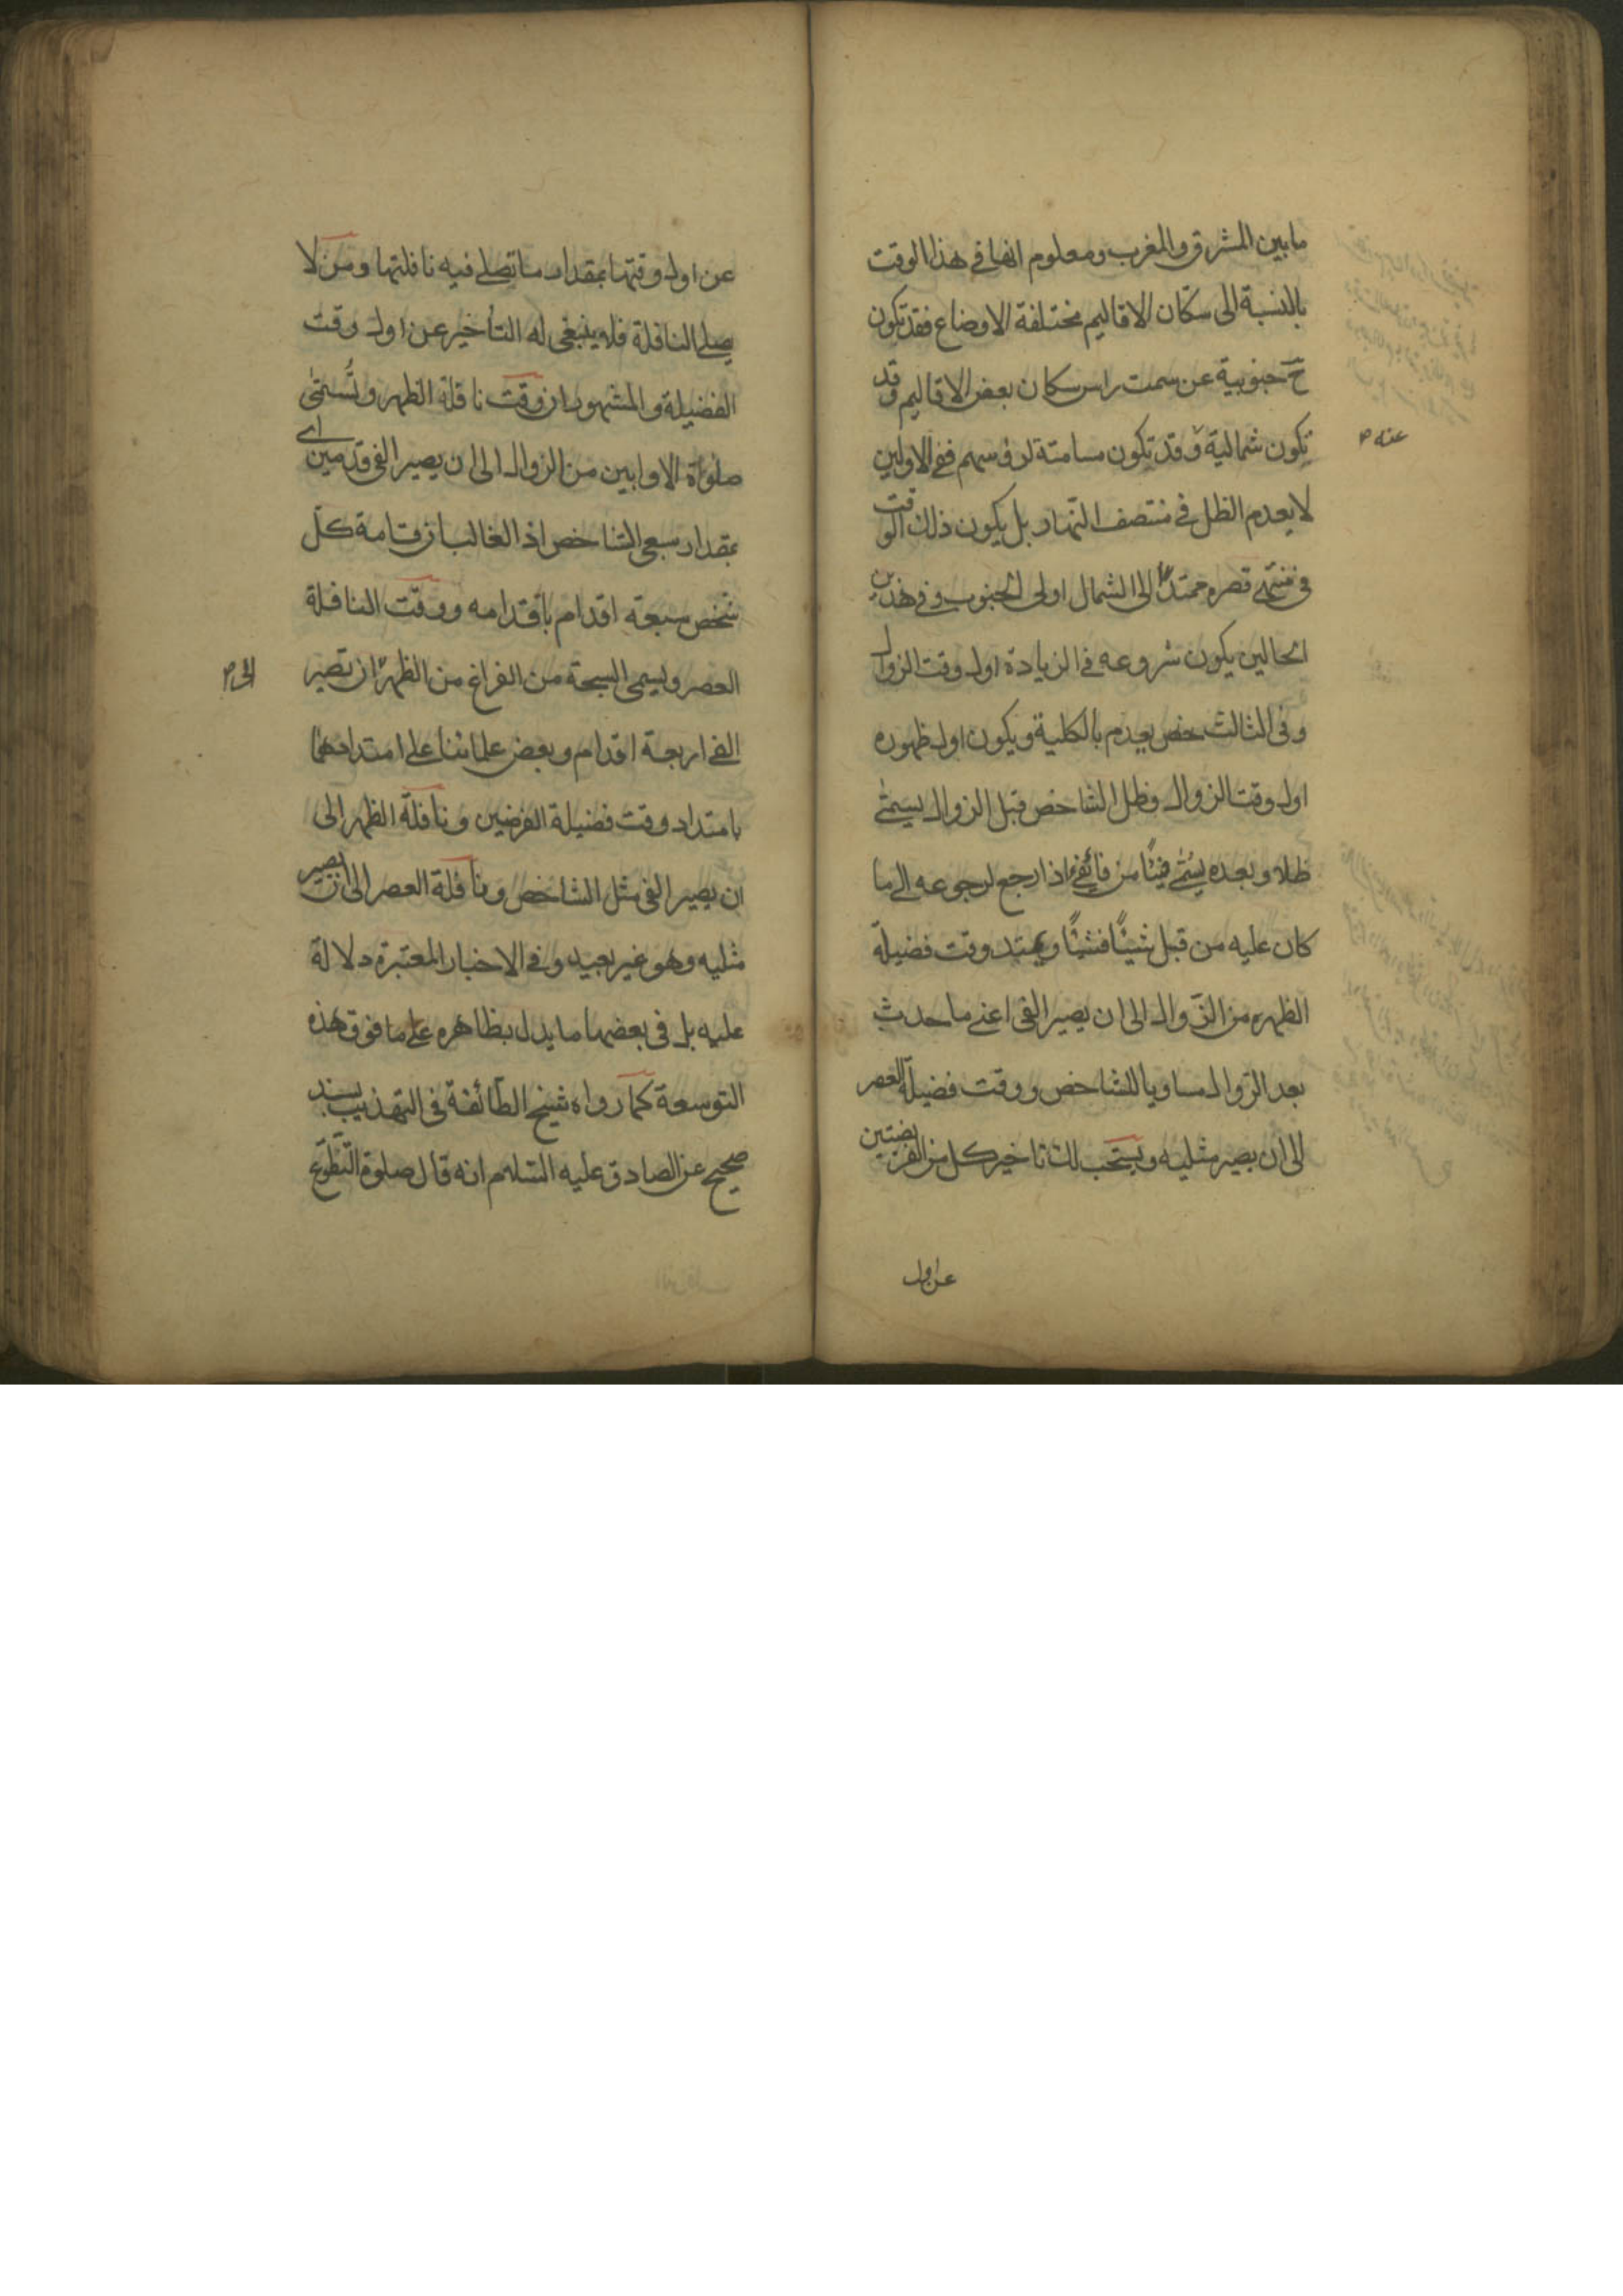 ما بين المشرق والمغرب ومعلوم انها في هذا الوقت
بالنسبة الى سكّان الاقاليم مختلفة الاوضاع فقد تكون
ح جنوبية عن سمت راس سكان بعض الاقاليم وقد
تكون شمالية وقد تكون مسامتة لرؤسهم ففي الاولين
عنه
لا يعدم الظل في منتصف النهار بل يكون ذلك الوقت
في منتهى قصره ممتدّا الى الشمال او الى الجنوب وفي هذين
الحالين يكون شروعه في الزيادة اول وقت الزوال
وفي الثالث يعدم بالكلية ويكون اول ظهوره
اول وقت الزوال وظل الشاخص قبل الزوال يسمّى
ظلا وبعده يسمّى فيئًا من فاء يفيء اذا رجع لرجوعه الى ما
كان عليه من قبل شيئًا فشيئًا ويمتد وقت فضيلة
الظهر من الزوال الى ان يصير الفئ اعني ما حدث
بعد الزوال مساويا للشاخص ووقت فضيلة العصر
الى ان يصير مثليه ويستحب لك تاخير كل من الفريضتين
عن اول
عن اول وقتها بمقدار ما تصلي فيه نافلتها ومن لا
يصلي النافلة فلا ينبغي له التأخير عن اول وقت
الفضيلة والمشهور ان وقت نافلة الظهر وتُسمّى
صلوة الاوابين من الزوال الى ان يصير الفئ قدمين اي
بمقدار سبعي الشاخص اذ الغالب ان قامة كلّ
شخص سبعة اقدام باقدامه ووقت النافلة
العصر ويسمى السبحة من الفراغ من الظهر ان تصير
الى
الفئ اربعة اقدام وبعض علمائنا على امتدادهما
بامتداد وقت فضيلة الفرضين ونافلة الظهر الى
ان يصير الفئ مثل الشاخص ونافلة العصر الى ان يصير
مثليه وهو غير بعيد وفي الاخبار المعتبرة دلالة
عليه بل في بعضها ما يدل بظاهره على ما فوق هذه
التوسعة كما رواه شيخ الطائفة في التهذيب بسند
صحيح عن الصادق عليه السلام انه قال صلوة التّطوّع